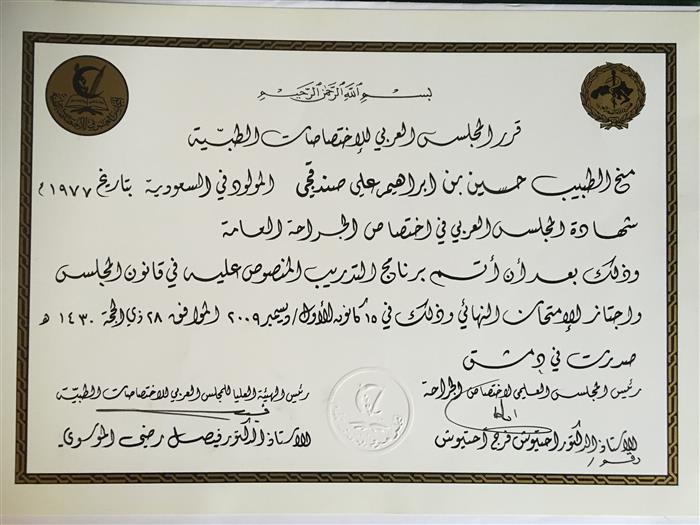 بسم الله الرحمن الرحيم
قرر المجلس العربي للإختصاصات الطبية
منح الطبيب حسين بن ابراهيم علي صندقجي المولود في السعودية بتاريخ ١٩٧٧ م
شهادة المجلس العربي في اختصاص الجراحة العامة
وذلك بعد أن أتم برنامج التدريب المنصوص عليه في قانون المجلس
واجتاز الإمتحان النهائي وذلك في ١٥ كانون الأول/ ديسمبر ٢٠٠٩ الموافق ٢٨ ذي الحجة ١٤٣٠ هـ
صدرت في دمشق
رئيس المجلس العلمي لاختصاص الجراحة
رئيس الهيئة العليا للمجلس العربي للاختصاصات الطبيّة
الاستاذ الدكتور احتيوش فرج احتيوش
الاستاذ الدكتور فيصل رضي الموسوي